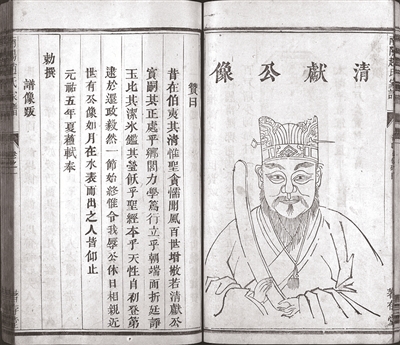 清獻公像
贊曰
昔在伯夷其清惟聖貪懦聞風百世增敬若清獻公
實嗣其正處乎鄉閭力學篤行立乎朝端而折廷諍
玉比其潔氷鑑其瑩似乎聖經本乎天性自初登第
逮於還政毅然一節始終惟令我辱公休日相親近
世有公像如月在水表而出之人皆仰止
元祐五年夏蘓軾奉
勅撰
譜像